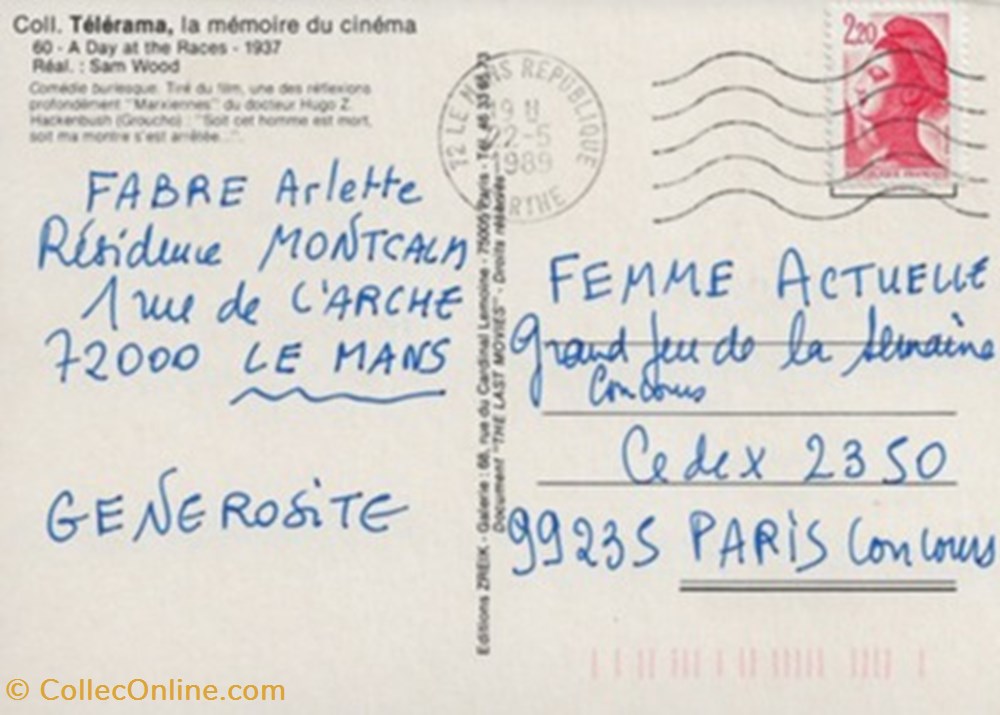 Coll. Télérama, la mémoire du cinéma
60 - A Day at the Races - 1937
Réal. : Sam Wood
Comédie burlesque. Tiré du film, une des réflexions
profondément "Marxiennes" du docteur Hugo Z.
Hackenbush (Groucho) : "Soit cet homme est mort,
soit ma montre s'est arrêtée...".
FABRE Arlette
Résidence MONTCALM
1 rue de L'ARCHE
72000 LE MANS
GENEROSITE
Editions ZREIK - Galerie : 68, rue du Cardinal Lemoine - 75005 Paris - Tél. 46 33
Document "THE LAST MOVIES" - Droits réservés
72 LE MANS REPUBLIQUE
19 H
22-5
1989
SARTHE
2,20
FEMME ACTUELLE
Grand Jeu de la Semaine
Concours
Cedex 2350
99235 PARIS Concours
© CollecOnline.com